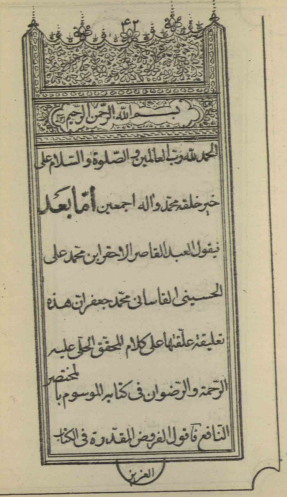 ٤٢
بسم الله الرحمن الرحيم
الحمد لله رب العالمين والصلوة والسلام على
خير خلقه محمد واله اجمعين اما بعد
فيقول العبد القاصر الاحقر ابن محمد على
الحسينى القاسانى محمد جعفر ان هذه
تعليقة علقتها على كلام المحقق الحلى عليه
الرحمة والرضوان فى كتابه الموسوم بالمختصر
النافع فاقول الفروض المقدرة فى الكتاب
العزيز